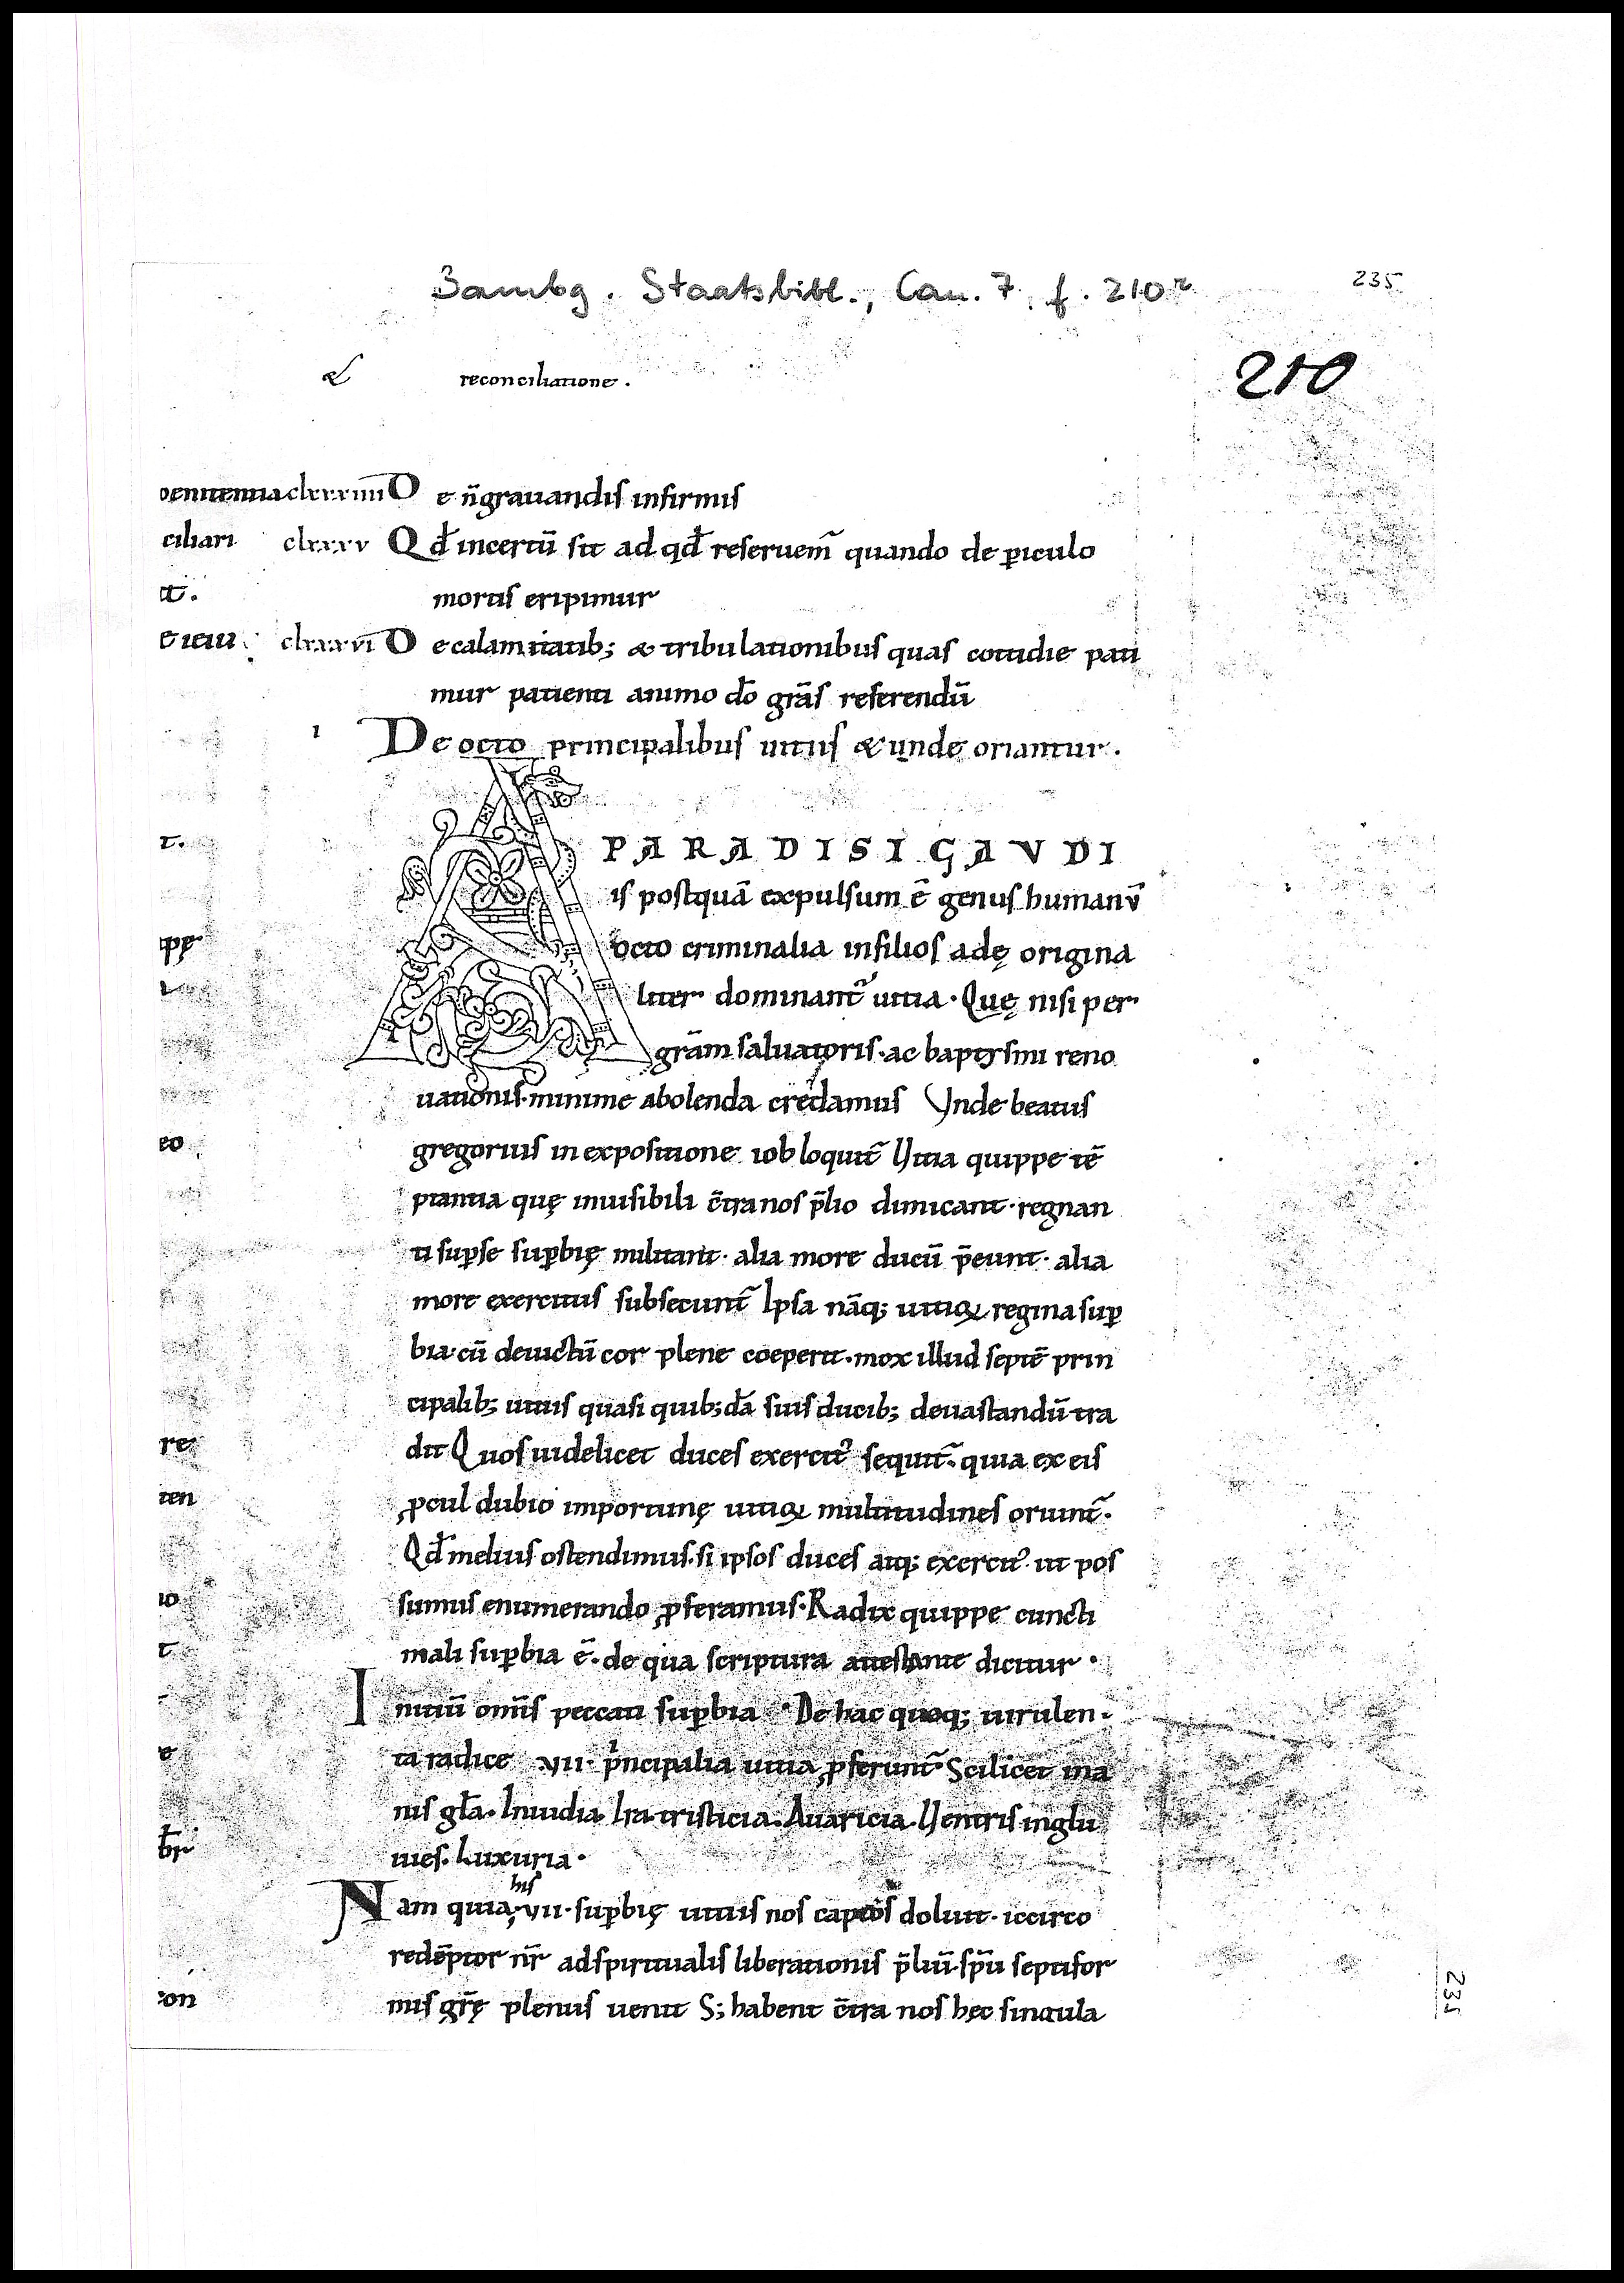 Bambg. Staatsbibl., Can. 7, f. 210r
235
210
& reconciliatione.
clxxxiiii De n̄grauandis infirmis
ciliari clxxxv Qđ incertū sit ad qđ reseruem̄ quando de ꝑiculo
mortis eripimur
clxxxvi De calamitatib; & tribulationibus quas cottidie pati
mur patienti animo dō grās referendū
i De octo principalibus uitiis & unde oriantur.
A PARADISI GAVDI
is postquā expulsum ē genus humanū
octo criminalia in filios adę origina
liter dominant̄ uitia. Quę nisi per
grām saluatoris. ac baptismi reno
uationis. minime abolenda credamus Inde beatus
gregorius in expositione iob loquit̄ Vitia quippe tē
ptantia quę inuisibili c̄tra nos p̄lio dimicant. regnan
ti suꝑ se suꝑbię militant. alia more ducū p̄eunt. alia
more exercitus subsecunt̄ Ipsa nāq; uitioꝝ regina suꝑ
bia. cū deuictū cor plene coeperit. mox illud septē prin
cipalib; uitiis quasi quib;dā suis ducib; deuastandū tra
dit Quos uidelicet duces exercit᾽ sequit̄. quia ex eis
ꝓcul dubio importunę uitioꝝ multitudines oriunt̄.
Qđ melius ostendimus. si ipsos duces atq; exercit᾽ ut pos
sumus enumerando ꝓferamus. Radix quippe cuncti
mali suꝑbia ē. de qua scriptura attestante dicitur.
Initiū omīs peccati suꝑbia. De hac quoq; uirulen
ta radice vii. p̍ncipalia uitia ꝓferunt̄. Scilicet ina
nis gła. Inuidia. Ira. tristicia. Auaricia. Ventris inglu
uies. Luxuria.
his
Nam quia. vii. suꝑbię uitiis nos captos doluit. iccirco
redēptor nr̄ ad spiritualis liberationis p̄liū. spū septifor
mis grę̄ plenus uenit S; habent c̄tra nos hęc singula
t.
eo
re
ten
io
t
e
con
235